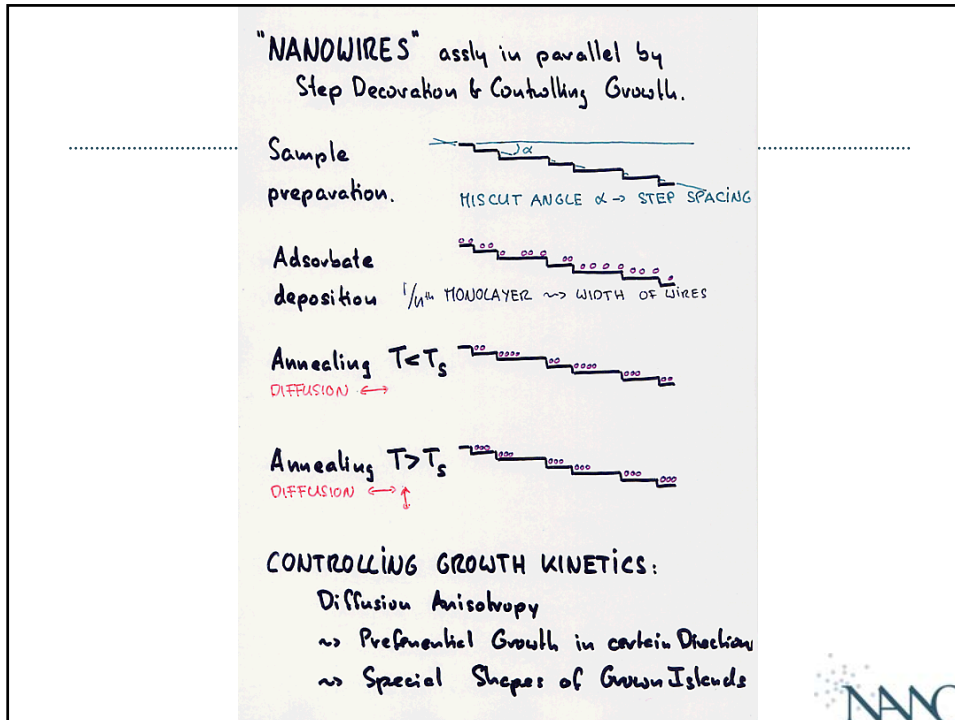 "NANOWIRES" assly in parallel by
Step Decoration & Controlling Growth.
Sample
preparation.
α
MISCUT ANGLE α → STEP SPACING
Adsorbate
deposition 1/nth MONOLAYER ~> WIDTH OF WIRES
Annealing T<Ts
DIFFUSION ↔
Annealing T>Ts
DIFFUSION ↔ ↕
CONTROLLING GROWTH KINETICS:
Diffusion Anisotropy
~> Preferential Growth in certain Direction
~> Special Shapes of Grown Islands
NANO